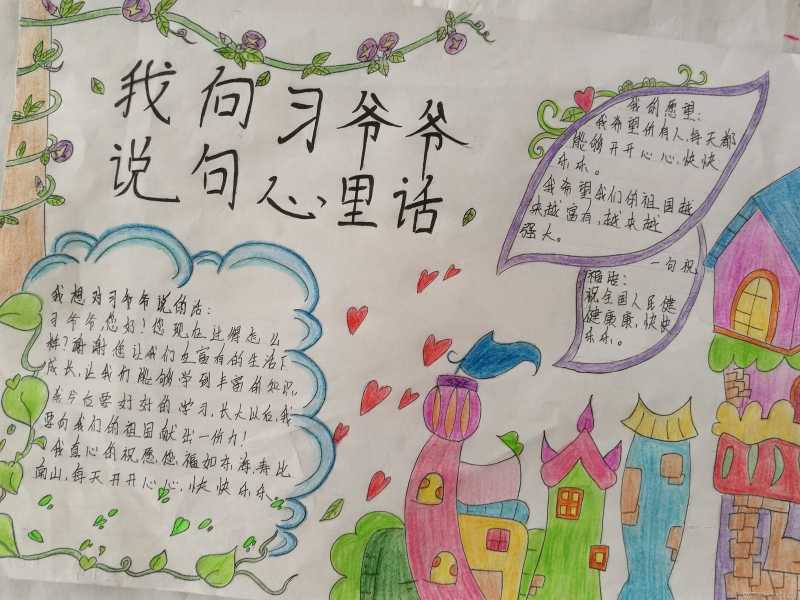 我向习爷爷
说句心里话
我想对习爷爷说的话:
习爷爷,您好!您现在过得怎么
样?谢谢您让我们在富有的生活下
成长,让我们能够学到丰富的知识。
我今后要好好的学习,长大以后,我
要向我们的祖国献出一份力!
我真心的祝愿您福如东海,寿比
南山,每天开开心心,快快乐乐。
我的愿望:
我希望所有人,每天都
能够开开心心,快快
乐乐。
我希望我们的祖国越
来越富有,越来越
强大。
一句祝
福语:
祝全国人民健
健康康,快快
乐乐。